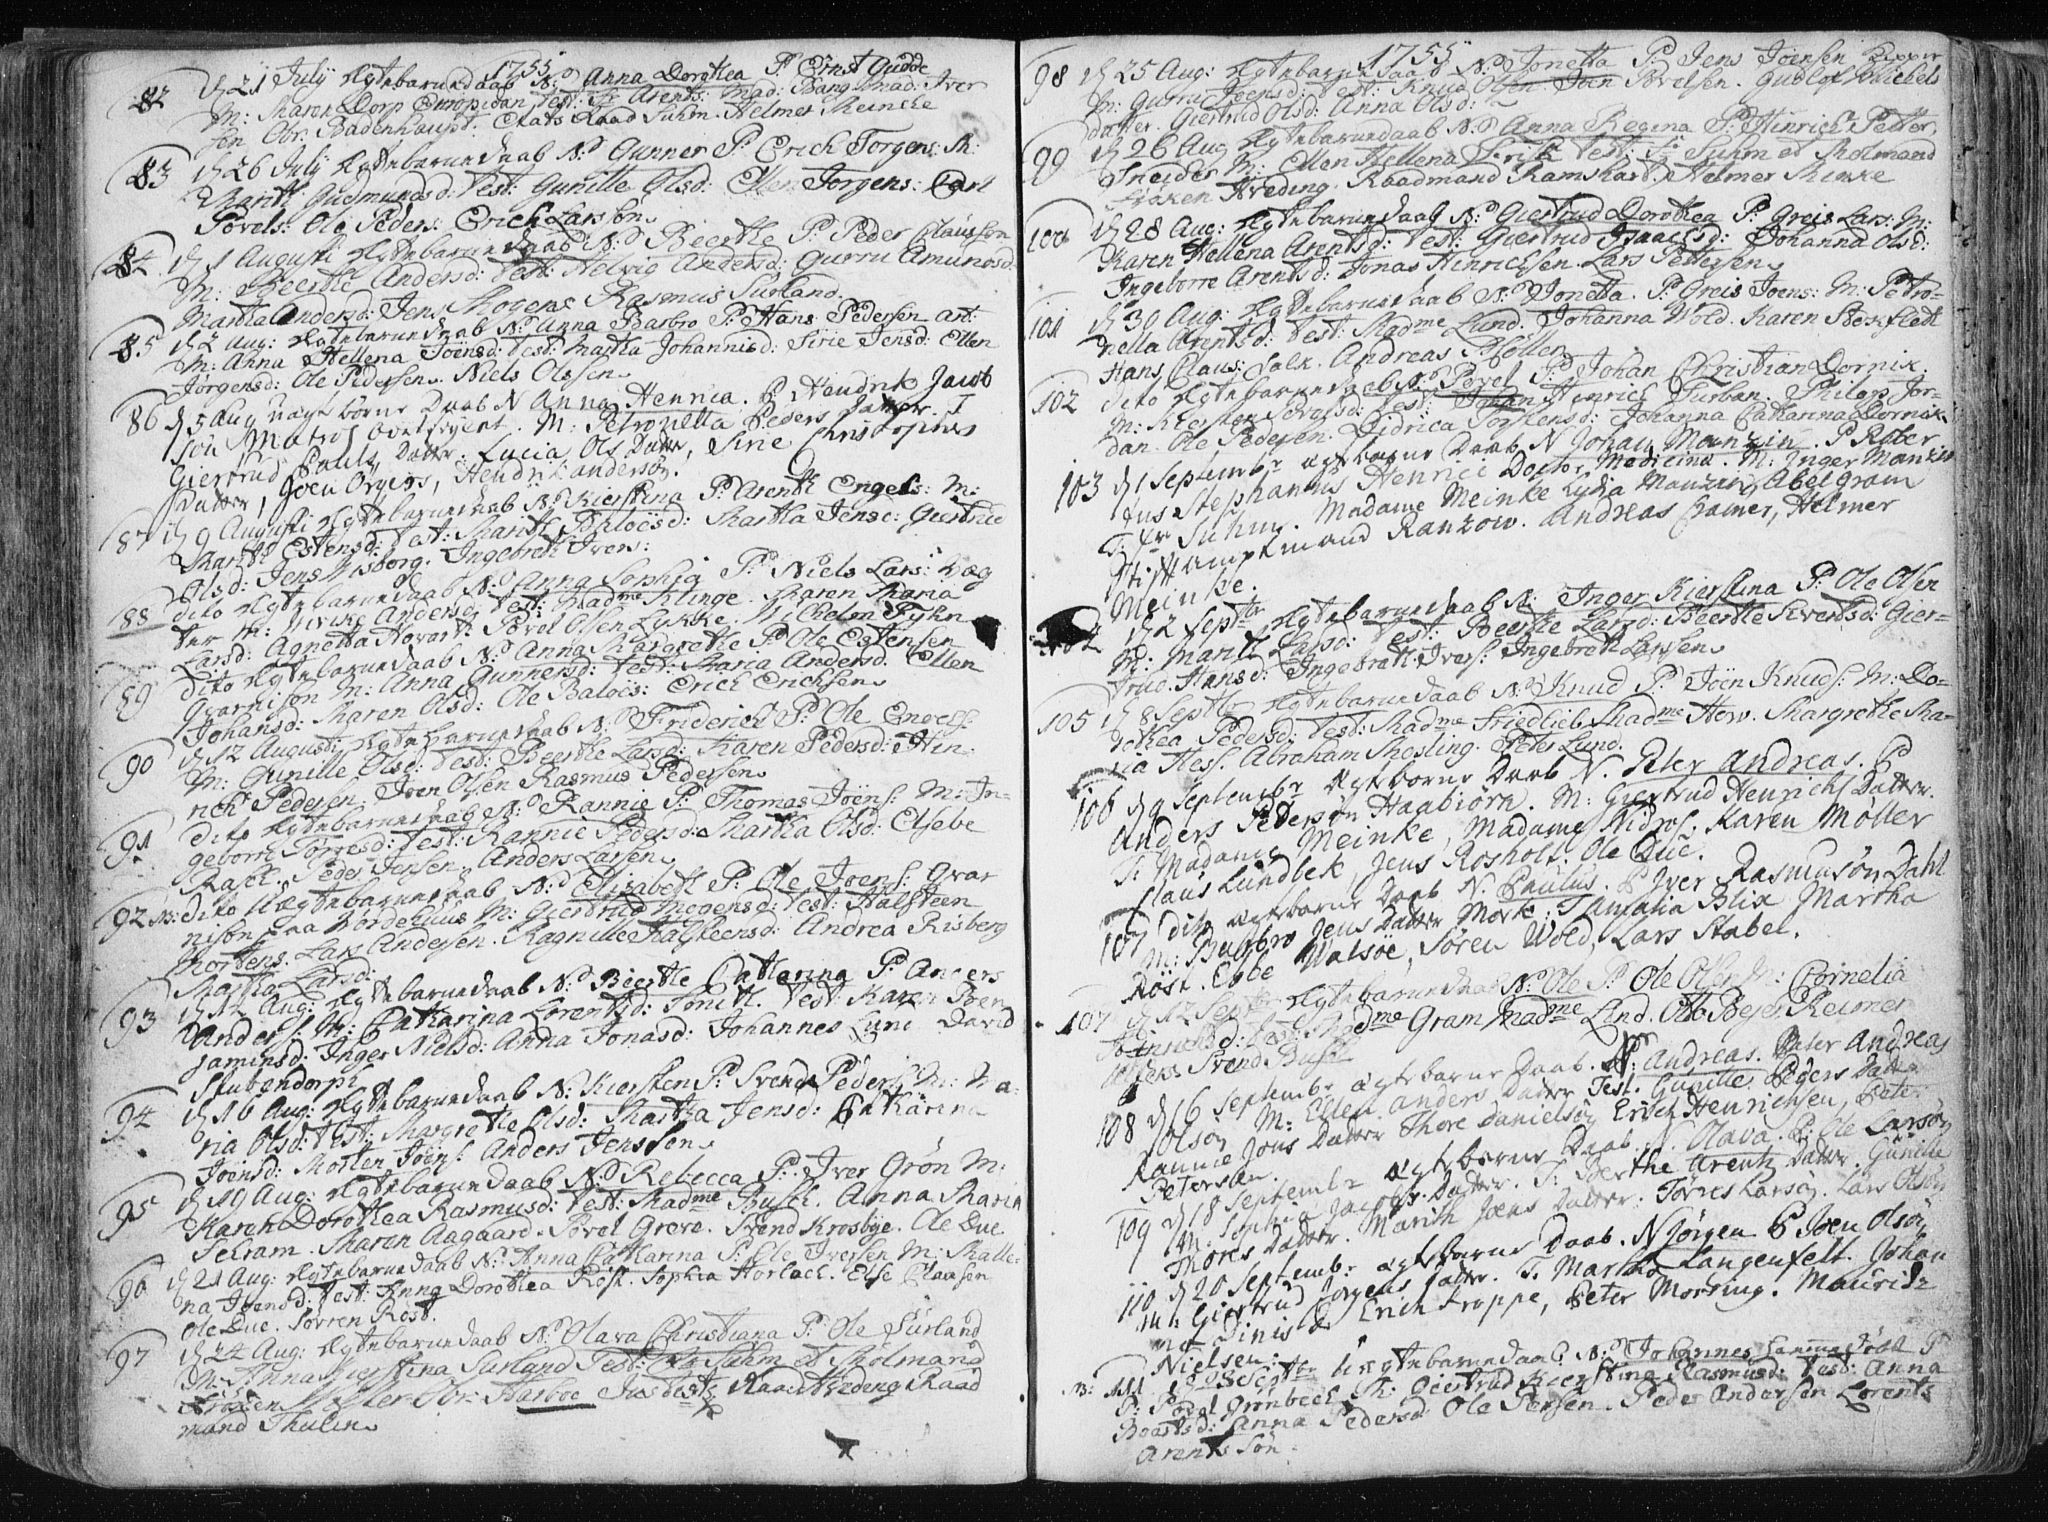 1755
82 d 21 July Ægtebarnedaab N. Anna Dorothea P. Ernst Gudde
M: Maren Dorp Test: Fr Arents: Mad: Bang Mad: Iver
sen Obr. Badenhaupt. Etats Raad Suhm. Helmer Meincke
83 d 26 July Ægtebarnedaab N. Gunner P. Erich Torgens: M:
Marith Gudmundsd: Test: Gunille Olsd: Ellen Jörgens: Carl
Povels: Ole Peders: Erich Larsen
84 d 1 Augusti Ægtebarnedaab N. Beerthe P: Peder Clausson
M: Beerthe Andersd: Test: Helvig Andersd: Gurru Amundsd:
Martha Andersd: Jens Mogens Rasmus Surland.
85 d 2 Aug: Ægtebarnedaab N. Anna Barbro P: Hans Pedersen art:
M: Anna Hellena Joensd: Test: Martha Johannisd: Sirie Jensd: Ellen
Jørgensd: Ole Pedersen. Niels Olssen
86 d 5 Aug ægtebørne Daab N Anna Henrica. P Hendrik Jacob
søn Matros M: Petronella Peders Datter. T
Giertrud Pauls Datter. Lucia Ols Datter, Sirie Christophers
Datter, Joen Hendrik anderson.
87 d 9 Augusti Ægtebarnedaab N. Kierstina P. Arent Engels: M:
Marith Estensd: Test: Marith Martha Jensd: Giertrud
Olsd: Jens Wisborg. Ingebreth Ivers:
88 dito Ægtebarnedaab N. Anna Sophia P. Niels Lars: Væg
ter M: Ulrike Andersd: Test: Madme Klinge. Maren Maria
Larsd: Agnetta Hovart: Povel Olsen Lykke. Wilhelm Tyhn
89 dito Ægtebarnedaab N. Anna Margrethe P. Ole Estensen
Gvarnison M: Anna Gunnersd: Test: Maria Andersd. Ellen
Johansd: Maren Olsd: Ole Baloes: Erich Erichsen
90 d 12 Augusti Ægtebarnedaab N. Friderich P. Ole Engels:
M: Gunille Olsd: Test: Beerthe Larsd: Karen Pedersd: Hin
rich Pedersen Joen Olsen Rasmus Pedersen
91 dito Ægtebarnedaab N. Rannie P: Thomas Joens: M: In
geborre Torresd: Test: Rannie Pedersd: Martha Olsd: Elsebe
Rasch. Peder Jensen. Anders Larsen
92 dito Uægtebarnedaab N. Elizabeth P: Ole Joens: Gvar
nison paa Wordehuus M: Giertrud Mogensd: Test: Halsteen
Mortens. Lars Andersen. Ragnille Halsteensd: Andrea Risberg
Martha Larsd:
93 d 12 Aug: Ægtebarnedaab N. Beerthe Catharina P. Anders
Anders: M: Catharina Lorentsd: Test: Karen Joen
jaminsd: Inger Nielsd: Anna Jonasd: Johannes Lund David
Stubendorph
94 d 16 Aug: Ægtebarnedaab N. Kiersten P. Svend Peders: M: Ma
ria Olsd: Test: Margrethe Olsd: Martha Jensd: Catharina
Joensd: Morten Joens: Anders Jenssen
95 d 19 Aug: Ægtebarnedaab N. Rebecca P: Iver Grøn M:
Karen Dorothea Rasmusd: Test: Madme Busch. Anna Maria
Schram. Maren Aagaard. Povel Greve. Svend Krosbye. Ole Due
96 d 21 Aug: Ægtebarnedaab N: Anna Catharina P. Ole Iversen M: Malle
na Ivensd: Test: Anna Dorothea Röst. Sophia Horlach. Else Clausen
Ole Due. Sörren Röst.
97 d 24 Aug: Ægtebarnedaab N. Olava Christiana P. Ole Surland
M: Anna Kierstina Surland Test: Etr Suhm et Molmand
Frøken Möller Harboe Justitz Raad Hveding Raad
mand Thulin
1755
98 d 25 Aug: Ægtebarnedaab N. Jonetta P. Jens Joensen
M: Gurru Joensd: Test: Knud Olsen Joen Povelsen. Gudlof Michels
datter. Giertrud Olsd: Anna Olsd:
99 d 26 Aug Ægtebarnedaab N. Anna Regina P. Hinrich Petter
Sneider M: Ellen Hellena Test: Fr Suhm et Molmand
Frøken Hveding. Raadmand Ramshart. Helmer Menke
100 d 28 Aug: Ægtebarnedaab N. Giertrud Dorothea P. Greis Lars: M:
Karen Hellena Arentsd: Test: Giertrud Isaacsd: Johanna Olsd:
Ingeborre Arentsd: Jonas Hinrichsen. Lars Pettersen
101 d 30 Aug: Ægtebarnedaab N. Jonetta. P: Greis Joens: M: Petro-
nella Arentsd: Test: Madme Lund. Johanna Wold. Karen Bokfledt
Hans Claus: Falk. Andreas Möller
102 dito Ægtebarnedaab N. Povel P. Johan Christian Dornik
M: Kiersten Test: Johan Hinrich Surban. Philop Jor-
dan. Ole Pedersen. Didrica Torstensd: Johanna Catharina Dornik
103 d 1 Septembr ægtebørne Daab N Johan Manzin. P Rober
tus Stephanus Henrici Doctor Medicinæ. M: Inger Manzin
T: Fr Suhm. Madame Meinke Lydia Manzin, Abel Gram
Stiftamptmand Ranzow. Andreas Cramer, Helmer
Meinke.
104 d 2 Septbr Ægtebarnedaab N: Inger Kierstina P: Ole Olsen
M: Marith Larsd: Test: Beerthe Larsd: Beerthe Siverdsd: Gier-
trud Hansd: Ingebreth Ivers: Ingebreth Larsen
105 d 8 Septbr Ægtebarnedaab N. Knud P. Joen Knuds: M: Do-
rothea Pedersd: Test: Madme Friedlieb Madme How. Margrethe Ma-
ria Hess. Abraham Mosling. Peter Lund.
106 d 9 Septembr Ægtebørne Daab N. Peter Andreas. P
Anders Pedersøn Haabiörn. M: Giertrud Henrichs Datter.
T: Madame Meinke, Madame Nidros. Karen Møller
Claus Lundbek, Jens Rosholt. Ole Due.
107 dito ægtebørne Daab N. Paulus. P Iver Rasmusøn Dahl
M: Barbro Jens Datter Mork: T. Amalia Blix Martha
Röst. Ebbe Walsøe, Søren Wold, Lars Stabel.
107 d 12 Septbr Ægtebarnedaab N. Ole P. Ole Olsen M: Cornelia
Test: Madme Gram Madme Lind. Otto Beyer. Reimer
Svend Busch
108 d 16 Septembr ægtebørne Daab. N. Andreas. P Peter Andreas
Olsøn M: Ellen Anders Datter Test. Gunille Peders Datter
Rannie Jons Datter Thore Danielsøn Erich Henrichsen, Peter
Petersøn.
109 d 18 Septembr ægtebørne Daab. N. Olava. P: Ole Larsøn
M: Sophia Jacobs Datter. T: Berthe Arentz Datter Gunille
Thores Datter. Marith Joens Datter. Törres Larsøn. Lars Olsøn
110 d 20 Septembr ægtebørne Daab. N Jørgen P Joen Olsøn
M: Giertrud Jörgens Datter. T. Martha Langenfelt. Johan
na Erich Froppe, Peter Morring. Mauritz
Nielsen.
111 d 23 Septbr Uægtebarnedaab N. Johannes P
P: Povel Grønbech M: Giertrud Kierstina Rasmusd: Test: Anna
Boastsd: Anna Pedersd: Ole Persen. Peder Andersen Lorents
Arents Søn.